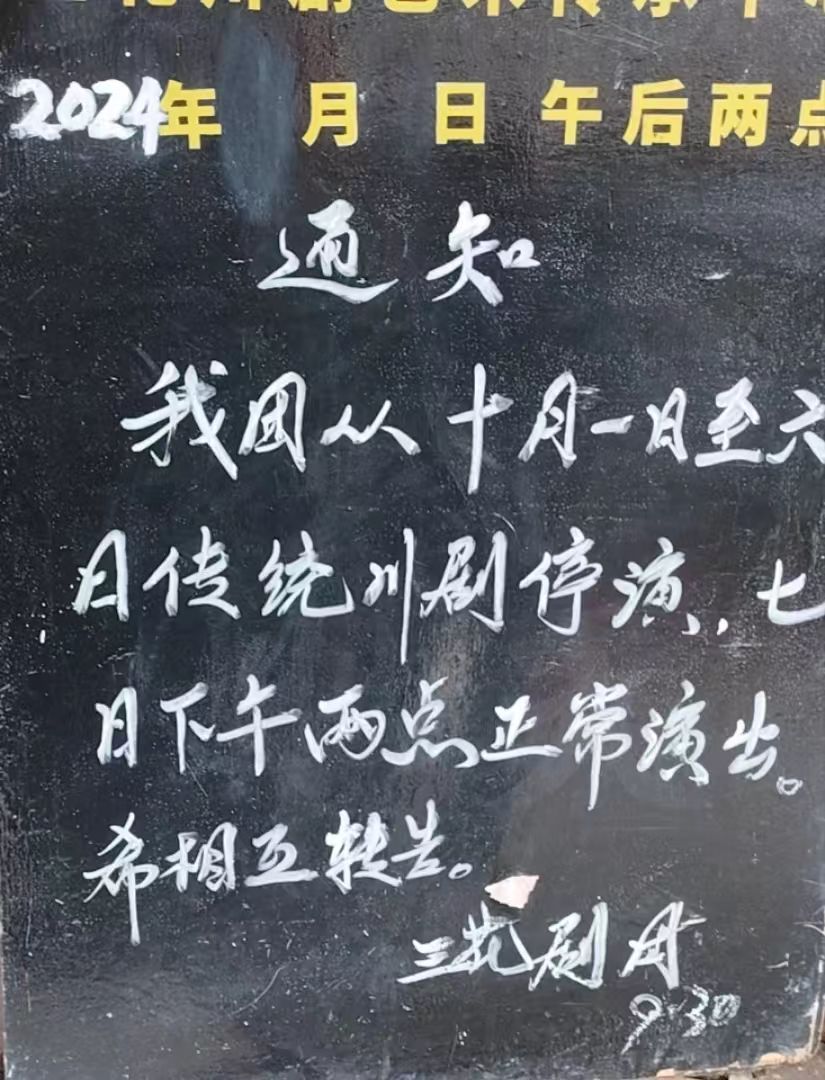 三花川剧艺术传承中心
2024年 月 日 午后两点
通知
我团从十月一日至六
日传统川剧停演，七
日下午两点正常演出。
希相互转告。
三花剧团
9·30